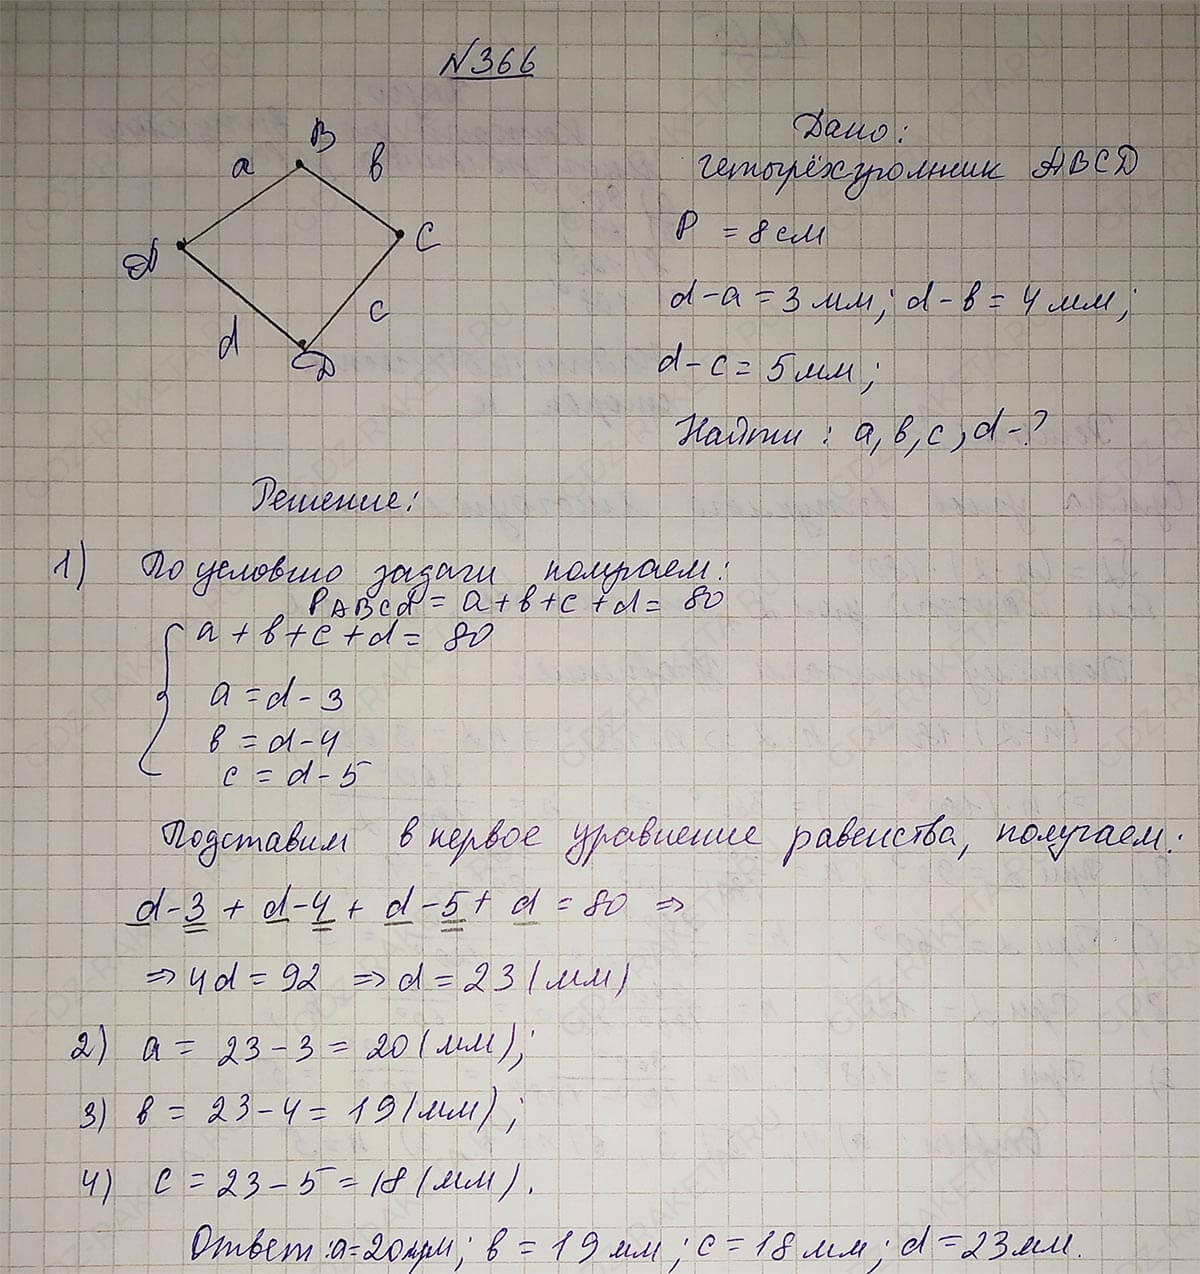 №366
B
a
в
A
C
d
c
D
Дано:
четырёхугольник ABCD
P = 8см
d-a = 3мм; d-в = 4мм;
d-c = 5мм;
Найти: a, в, c, d-?
Решение:
1) По условию задачи получаем:
PABCD = a+в+c+d = 80
a+в+c+d = 80
a = d-3
в = d-4
c = d-5
Подставим в первое уравнение равенства, получаем:
d-3 + d-4 + d-5 + d = 80 ⇒
⇒ 4d = 92 ⇒ d = 23 (мм)
2) a = 23-3 = 20 (мм);
3) в = 23-4 = 19 (мм);
4) c = 23-5 = 18 (мм).
Ответ: a=20мм; в = 19мм; c = 18мм; d = 23мм.